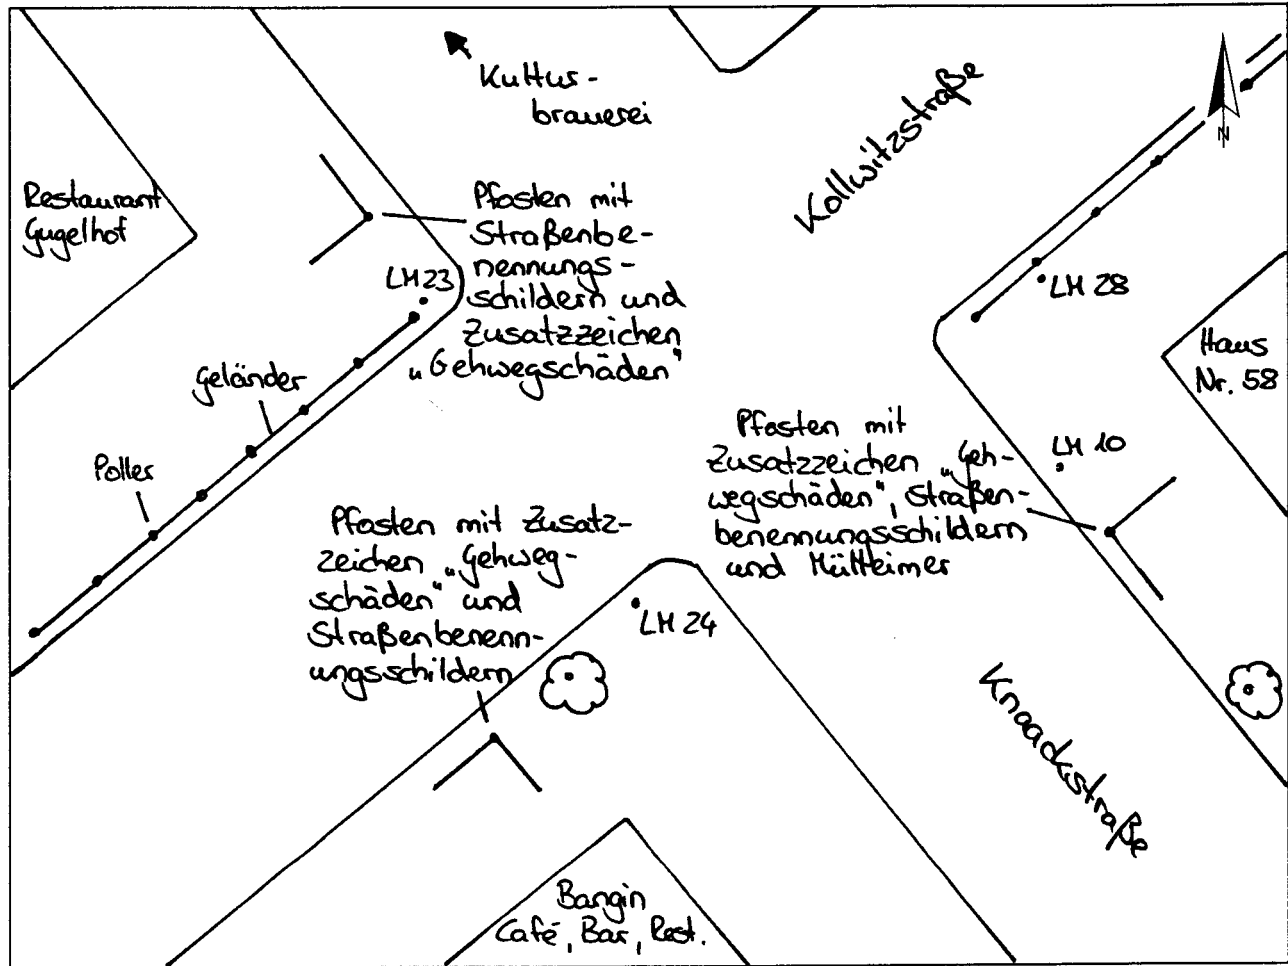 Kultur-
brauerei
Kollwitzstraße
N
Restaurant
Gugelhof
Pfosten mit
Straßenbe-
nennungs-
schildern und
Zusatzzeichen
„Gehwegschäden"
LM 23
LM 28
Haus
Nr. 58
Geländer
Poller
Pfosten mit
Zusatzzeichen „Geh-
wegschäden", Straßen-
benennungsschildern
und Mülleimer
LM 10
Pfosten mit Zusatz-
zeichen „Gehweg-
schäden" und
Straßenbenenn-
ungsschildern
LM 24
Knaackstraße
Bangin
Café, Bar, Rest.